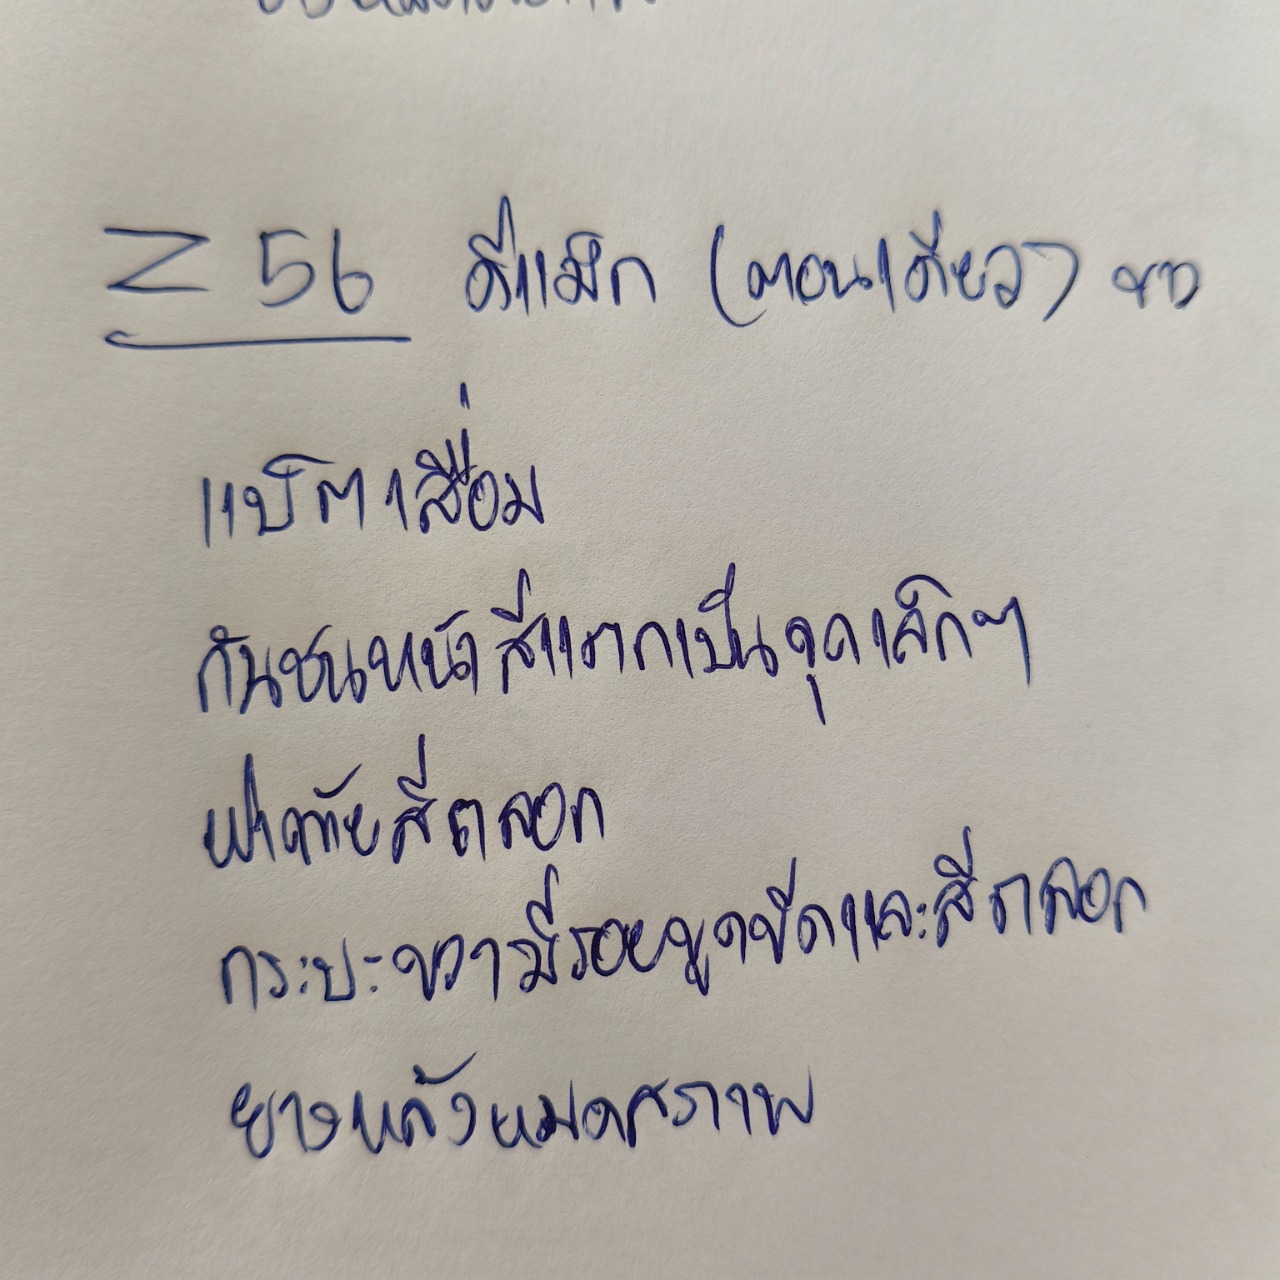 Z 56 ดีแม็ก (ตอนเดียว) ขาว
แบ็ตเสื่อม
กันชนหน้าสีแตกเป็นจุดเล็กๆ
ฝาท้ายสีถลอก
กระบะขวามีรอยขูดขีดและสีถลอก
ยางหลังหมดสภาพ